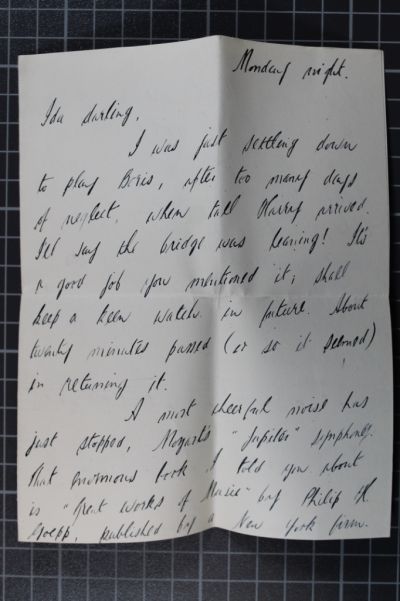 Monday night.
Ida darling,
I was just settling down
to play Boris, after too many days
of neglect, when tall Harry arrived.
I'll say the bridge was leaning! It's
a good job you mentioned it; shall
keep a keen watch in future. About
twenty minutes passed (or so it seemed)
in retuning it.
A most cheerful noise has
just stopped, Mozart's "Jupiter" Symphony.
That enormous book I told you about
is "Great works of Music" by Philip H.
Goepp, published by a New York firm.